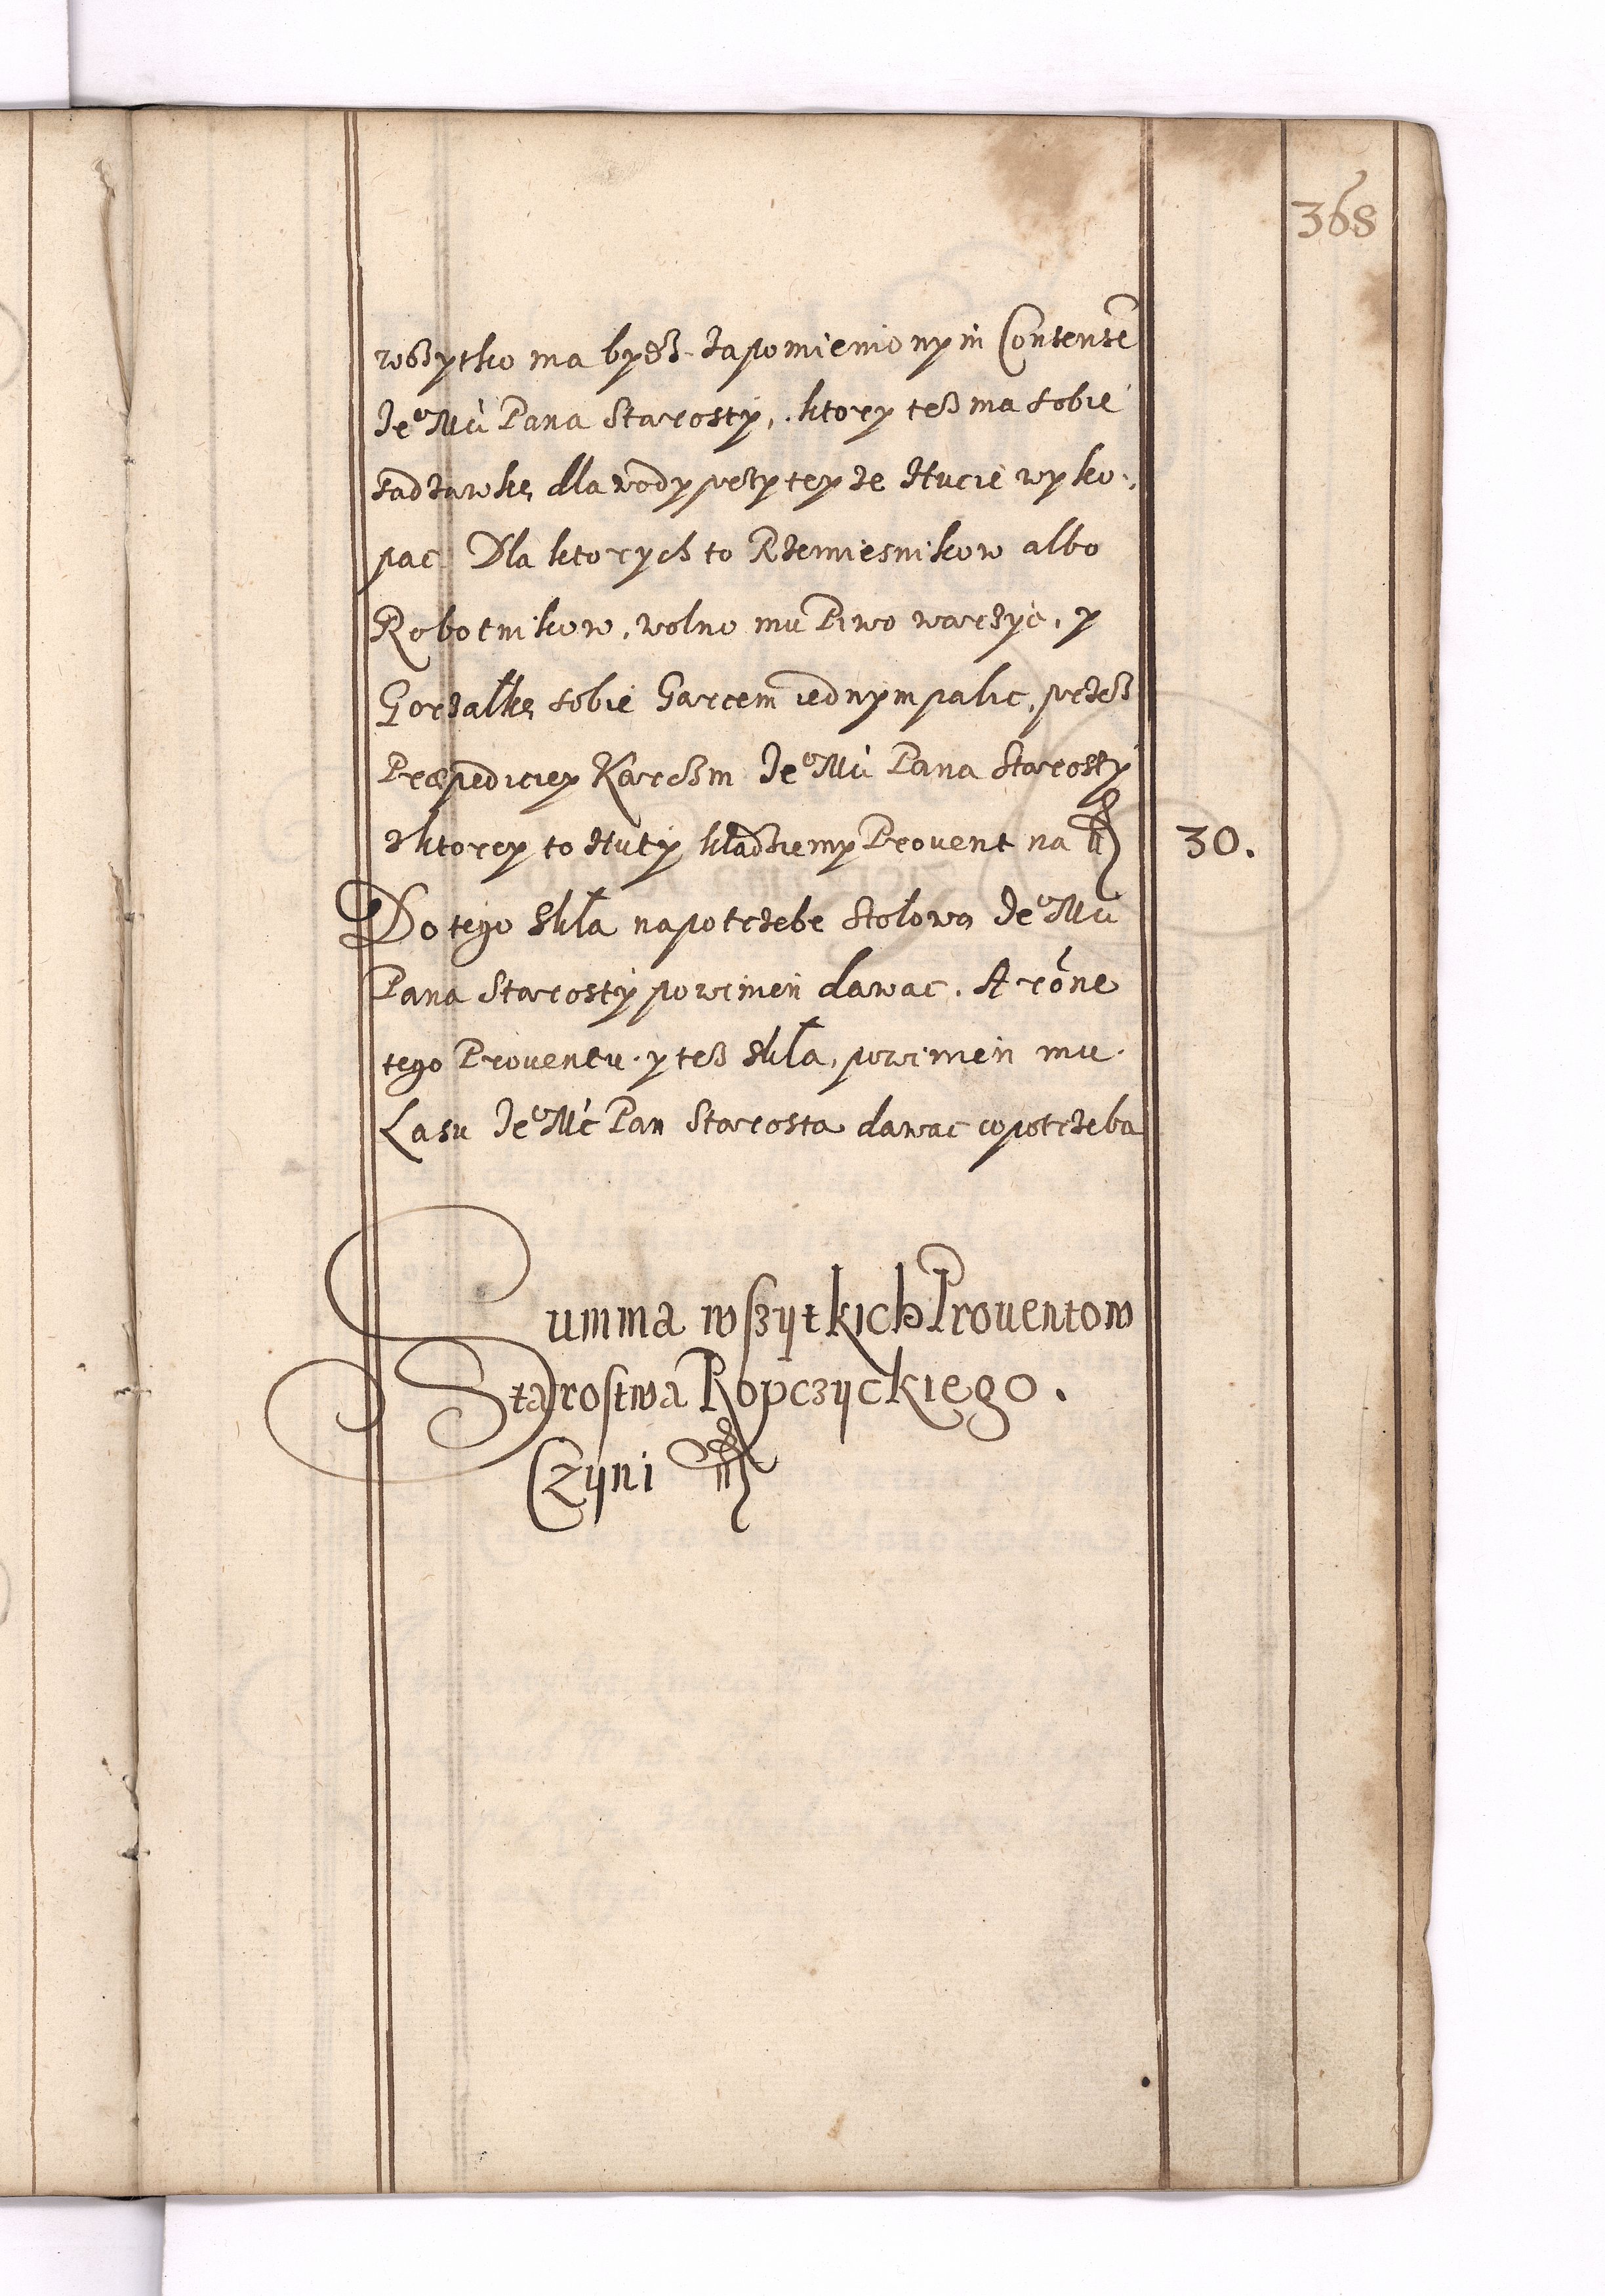 368
wszytko ma bydz zapomienionym Consense
Jeº Mći Pana Starosty, ktory tesz ma sobie
sadzawkę dla wody przy teyze Hucie wyko-
pac. Dla ktorych to Rzemiesnikow albo
Robotnikow, wolno mu Piwo warzyc, y
Gorzałkę sobie Garcem iednym palic, przesz
Præpediciey Karczm Jeº Mći Pana Starosty
z ktorey to Huty kładziemy Prouent na ƒ 30.
Do tego Skła na potrzebe Stołową Jeº Mći
Pana Starosty powinien dawac. A rõne
tego Prouentu. y tesz Skła, powinien mu
Lasu Jeº Mć Pan Starosta dawac co potrzeba
Summa wszytkich Prouentow
Starostwa Ropczyckiego.
Czyni ƒ